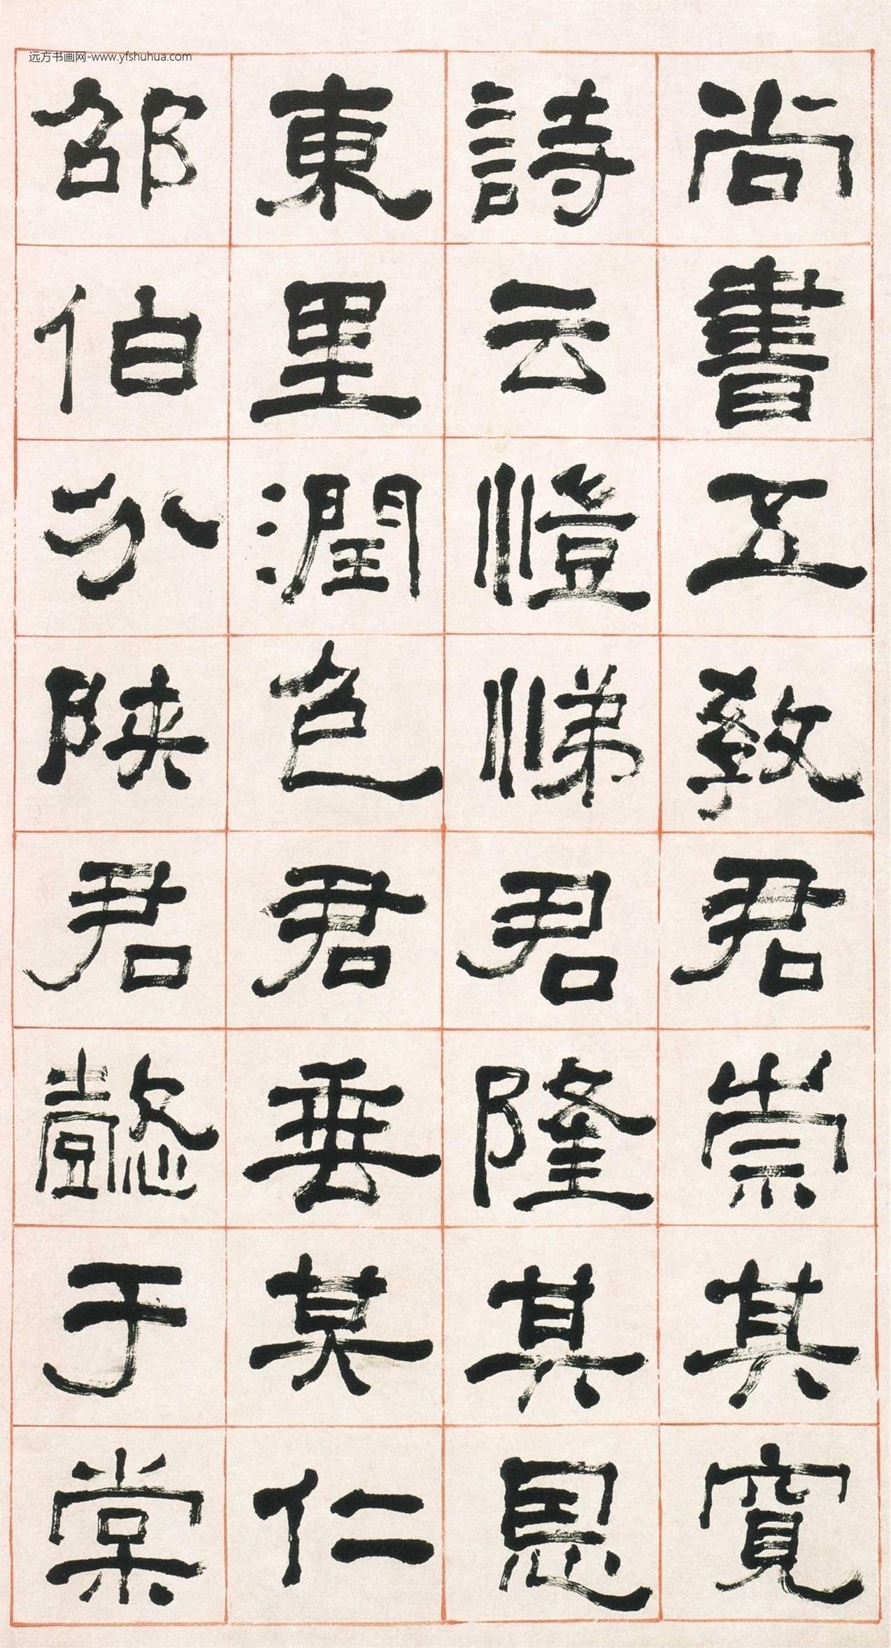 远方书画网-www.yfshuhua.com
尚書五教君崇其寬
詩云愷悌君隆其恩
東里潤色君垂其仁
邵伯分陝君懿于棠